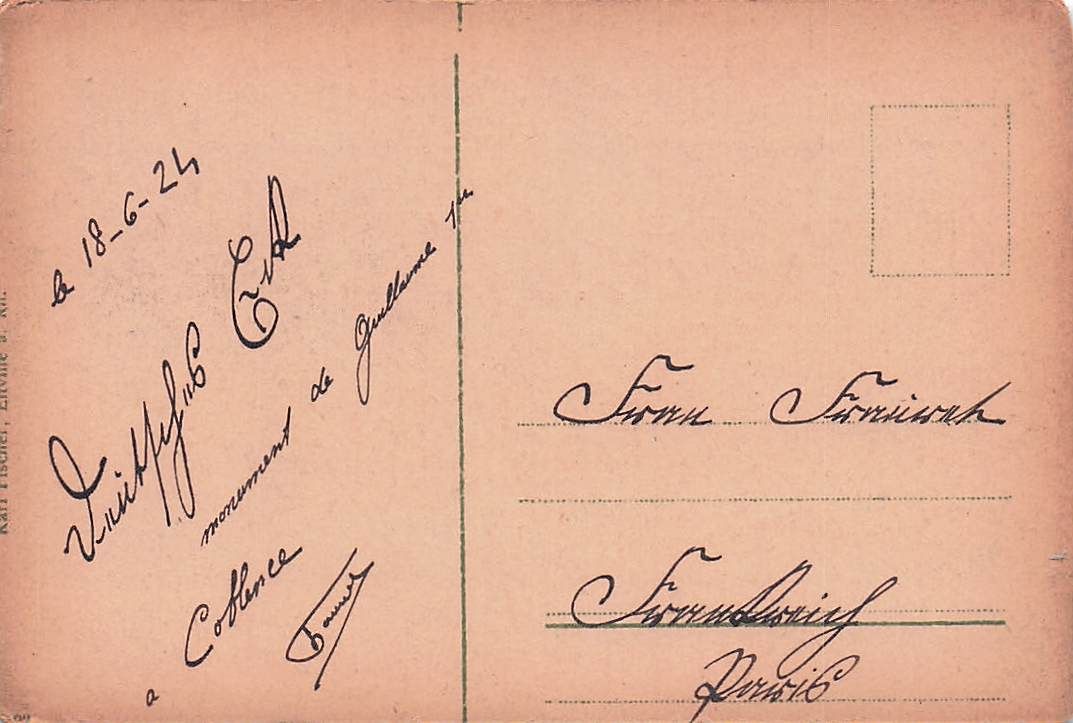 le 18-6-24
Deutsches Eck
monument de Guillaume 1er
a Coblence
Frau
Frankreich
Paris
Karl Fischer, Eltville a. Rh.